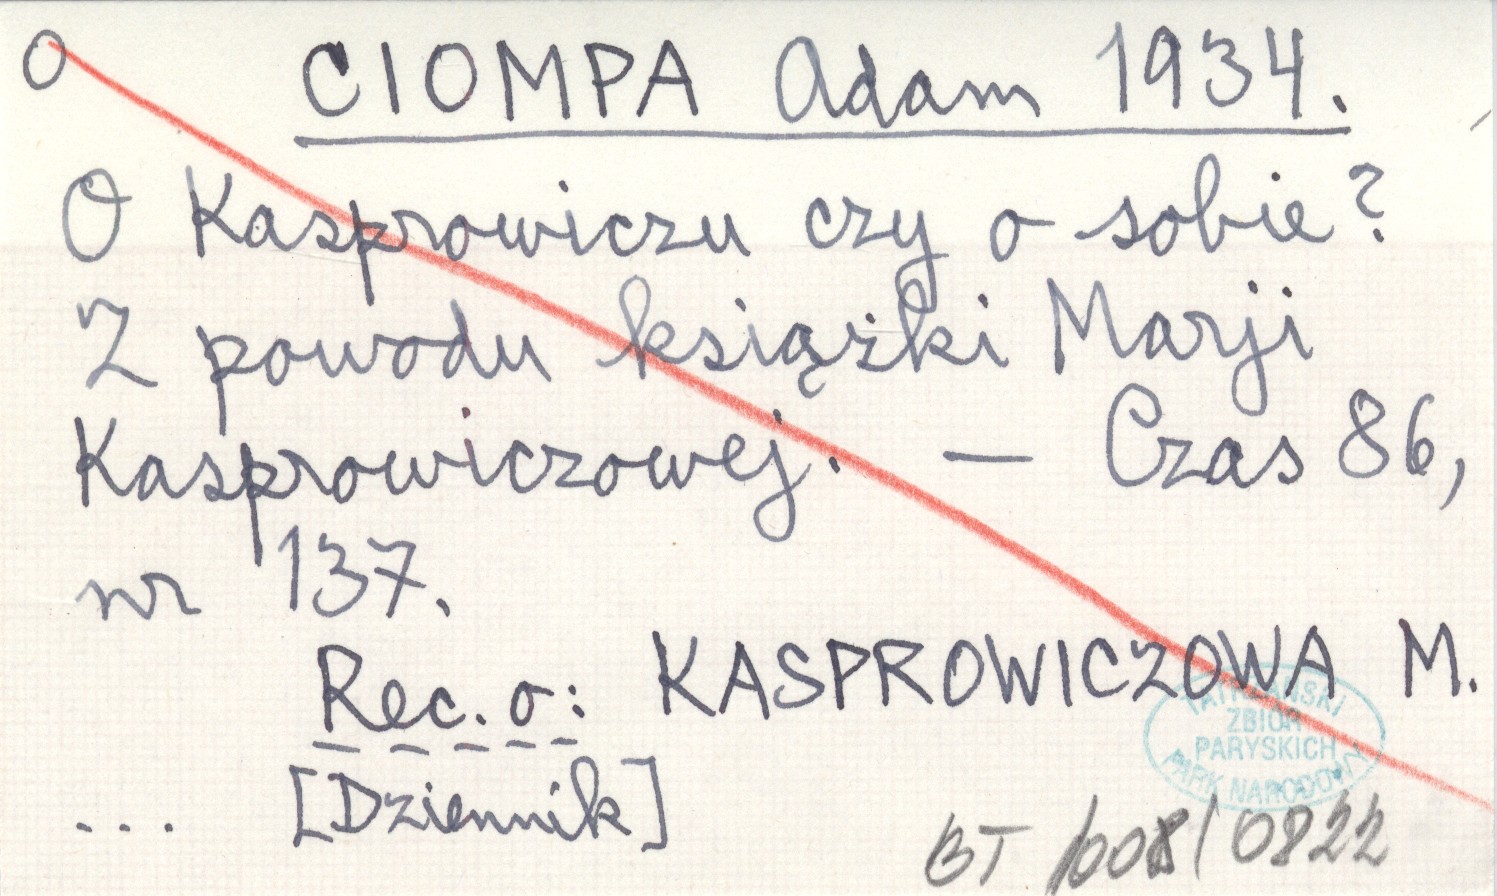 O CIOMPA Adam 1934.
O Kasprowiczu czy o sobie?
Z powodu książki Marji
Kasprowiczowej. — Czas 86,
nr 137.
Rec. o: KASPROWICZOWA M.
... [Dziennik]
TATRZAŃSKI
ZBIÓR
PARYSKICH
PARK NARODOWY
BT /608/0822